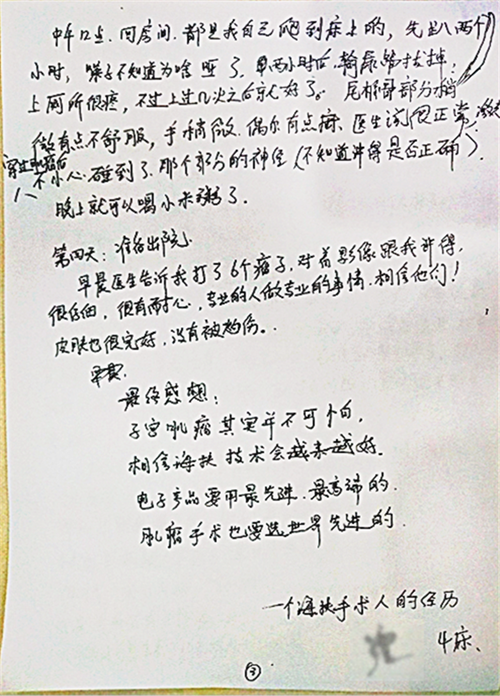 中午12点.回房间.都是我自己爬到床上的,先趴两个
小时,嗓子不知道为啥哑了.単两小时后输尿管拔掉,
上厕所很疼,不过上过几次之后就好了。尾椎骨部分稍
微有点不舒服,手稍微、偶尔有点麻.医生说很正常,
不小心碰到了.那个部分的神经(不知道讲得是否正确).
晚上就可以喝小米粥了.
第四天:准备出院.
早晨医生告诉我打了6个瘤子,对着影像跟我讲得,
很仔细,很有耐心,专业的人做专业的事情.相信他们!
皮肤也很完好,没有被灼伤。
最终感想:
子宫肌瘤其实并不可怕,
相信海扶技术会越来越好.
电子产品要用最先进.最高端的.
肌瘤手术也要选世界先进的.
一个海扶手术人的经历
4床、
③